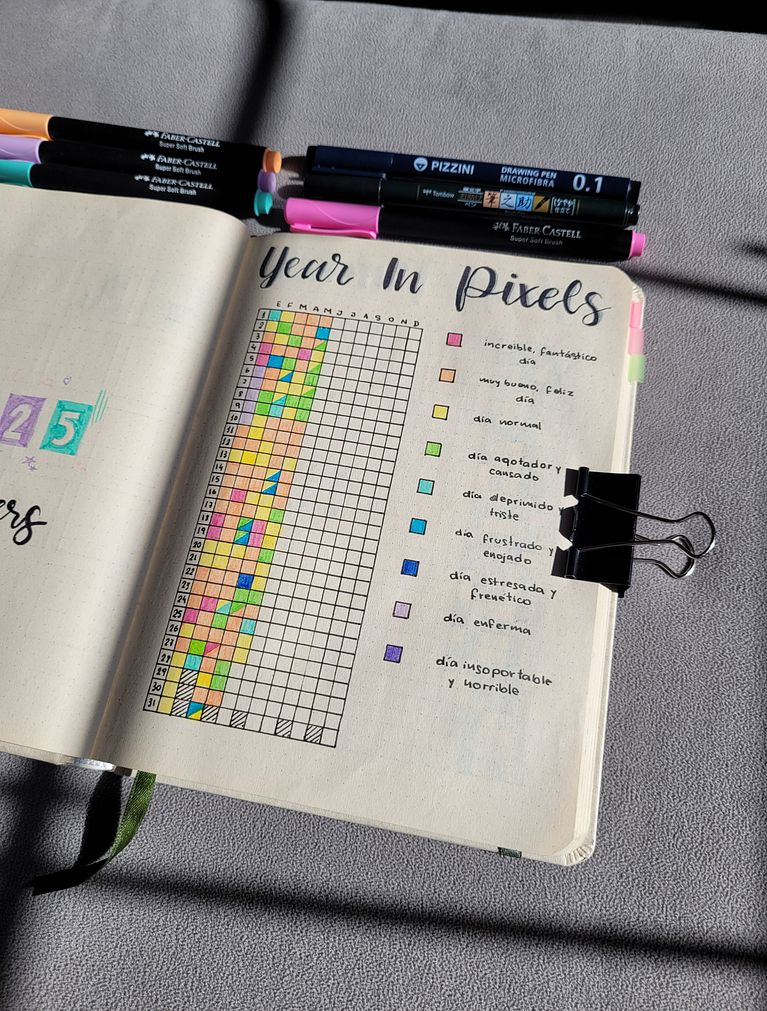 FABER-CASTELL
Super Soft Brush
FABER-CASTELL
Super Soft Brush
FABER-CASTELL
Super Soft Brush
PIZZINI DRAWING PEN MICROFIBRA 0.1
Tombow 筆之助
FABER-CASTELL
Super Soft Brush
Year In Pixels
E F M A M J J A S O N D
1
2
3
4
5
6
7
8
9
10
11
12
13
14
15
16
17
18
19
20
21
22
23
24
25
26
27
28
29
30
31
increible, fantástico
día
muy bueno, feliz
día
día normal
día agotador y
cansado
día deprimido y
triste
día frustrado y
enojado
día estresada y
frenético
día enferma
día insoportable
y horrible
25
ers